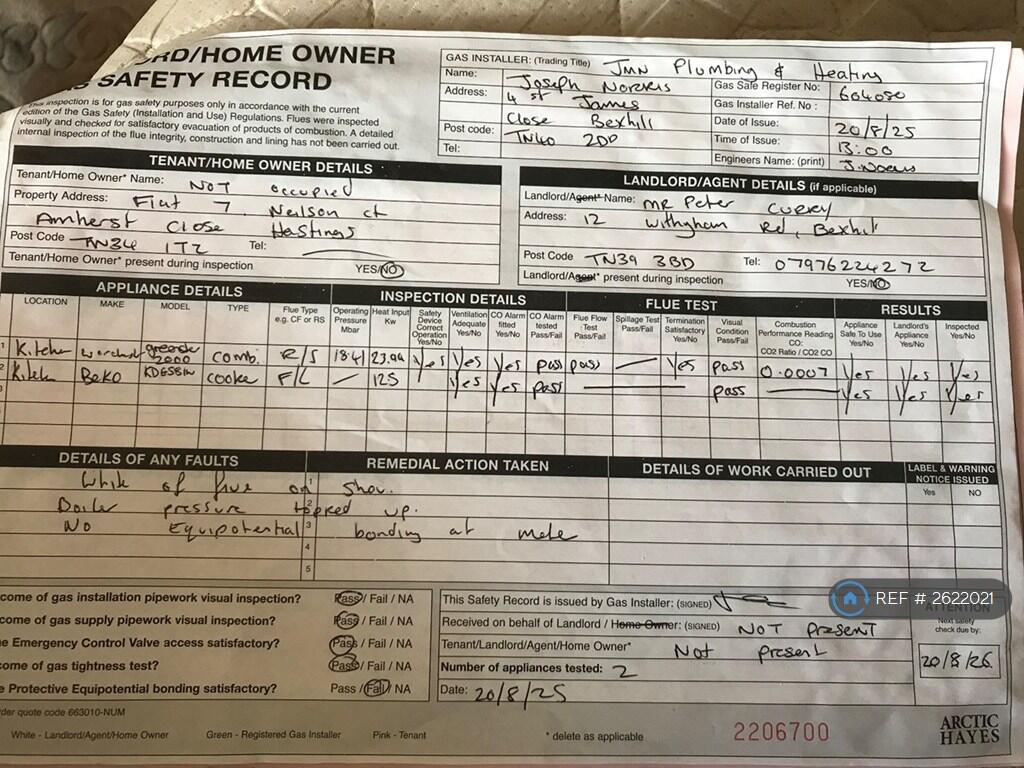 RD/HOME OWNER
SAFETY RECORD
This inspection is for gas safety purposes only in accordance with the current
edition of the Gas Safety (Installation and Use) Regulations. Flues were inspected
visually and checked for satisfactory evacuation of products of combustion. A detailed
internal inspection of the flue integrity, construction and lining has not been carried out.
GAS INSTALLER: (Trading Title) JMN Plumbing & Heating
Name: Joseph Norris
Address: 4 St James
Close Bexhill
Post code: TN40 2DD
Tel:
Gas Safe Register No: 604080
Gas Installer Ref. No :
Date of Issue: 20/8/25
Time of Issue: 13:00
Engineers Name: (print) J.
TENANT/HOME OWNER DETAILS
Tenant/Home Owner* Name: NOT occupied
Property Address: Flat 7 Neilson ct
Amherst Close Hastings
Post Code TN34 1TZ Tel:
Tenant/Home Owner* present during inspection YES/NO
LANDLORD/AGENT DETAILS (if applicable)
Landlord/Agent* Name: MR Peter CURRY
Address: 12 Withyham Rd, Bexhill
Post Code TN39 3BD Tel: 07976224272
Landlord/Agent* present during inspection YES/NO
APPLIANCE DETAILS INSPECTION DETAILS FLUE TEST RESULTS
LOCATION MAKE MODEL TYPE Flue Type e.g. CF or RS Operating Pressure Mbar Heat Input Kw Safety Device Correct Operation Yes/No Ventilation Adequate Yes/No CO Alarm fitted Yes/No CO Alarm tested Pass/Fail Flue Flow Test Pass/Fail Spillage Test Pass/Fail Termination Satisfactory Yes/No Visual Condition Pass/Fail Combustion Performance Reading CO: CO2 Ratio / CO2 CO Appliance Safe To Use Yes/No Landlord's Appliance Yes/No Inspected Yes/No
1 Kitchen 2000 combi R/S 18.4 23.94 Yes Yes Yes pass pass — Yes pass 0.0007 Yes Yes Yes
2 Kitchen Beko cooker F/L — 12.5 Yes Yes pass — pass — Yes Yes Yes
3
DETAILS OF ANY FAULTS REMEDIAL ACTION TAKEN DETAILS OF WORK CARRIED OUT LABEL & WARNING NOTICE ISSUED
Yes NO
1 of flue on
2 Boiler pressure topped up.
3 No Equipotential bonding at
4
5
come of gas installation pipework visual inspection? Pass / Fail / NA
come of gas supply pipework visual inspection? Pass / Fail / NA
e Emergency Control Valve access satisfactory? Pass / Fail / NA
come of gas tightness test? Pass / Fail / NA
e Protective Equipotential bonding satisfactory? Pass / Fail / NA
This Safety Record is issued by Gas Installer: (SIGNED)
Received on behalf of Landlord / Home Owner: (SIGNED) NOT Present
Tenant/Landlord/Agent/Home Owner* Not present
Number of appliances tested: 2
Date: 20/8/25
REF # 2622021
ATTENTION
Next safety
check due by:
20/8/26
der quote code 663010-NUM
White - Landlord/Agent/Home Owner Green - Registered Gas Installer Pink - Tenant * delete as applicable
2206700
ARCTIC
HAYES